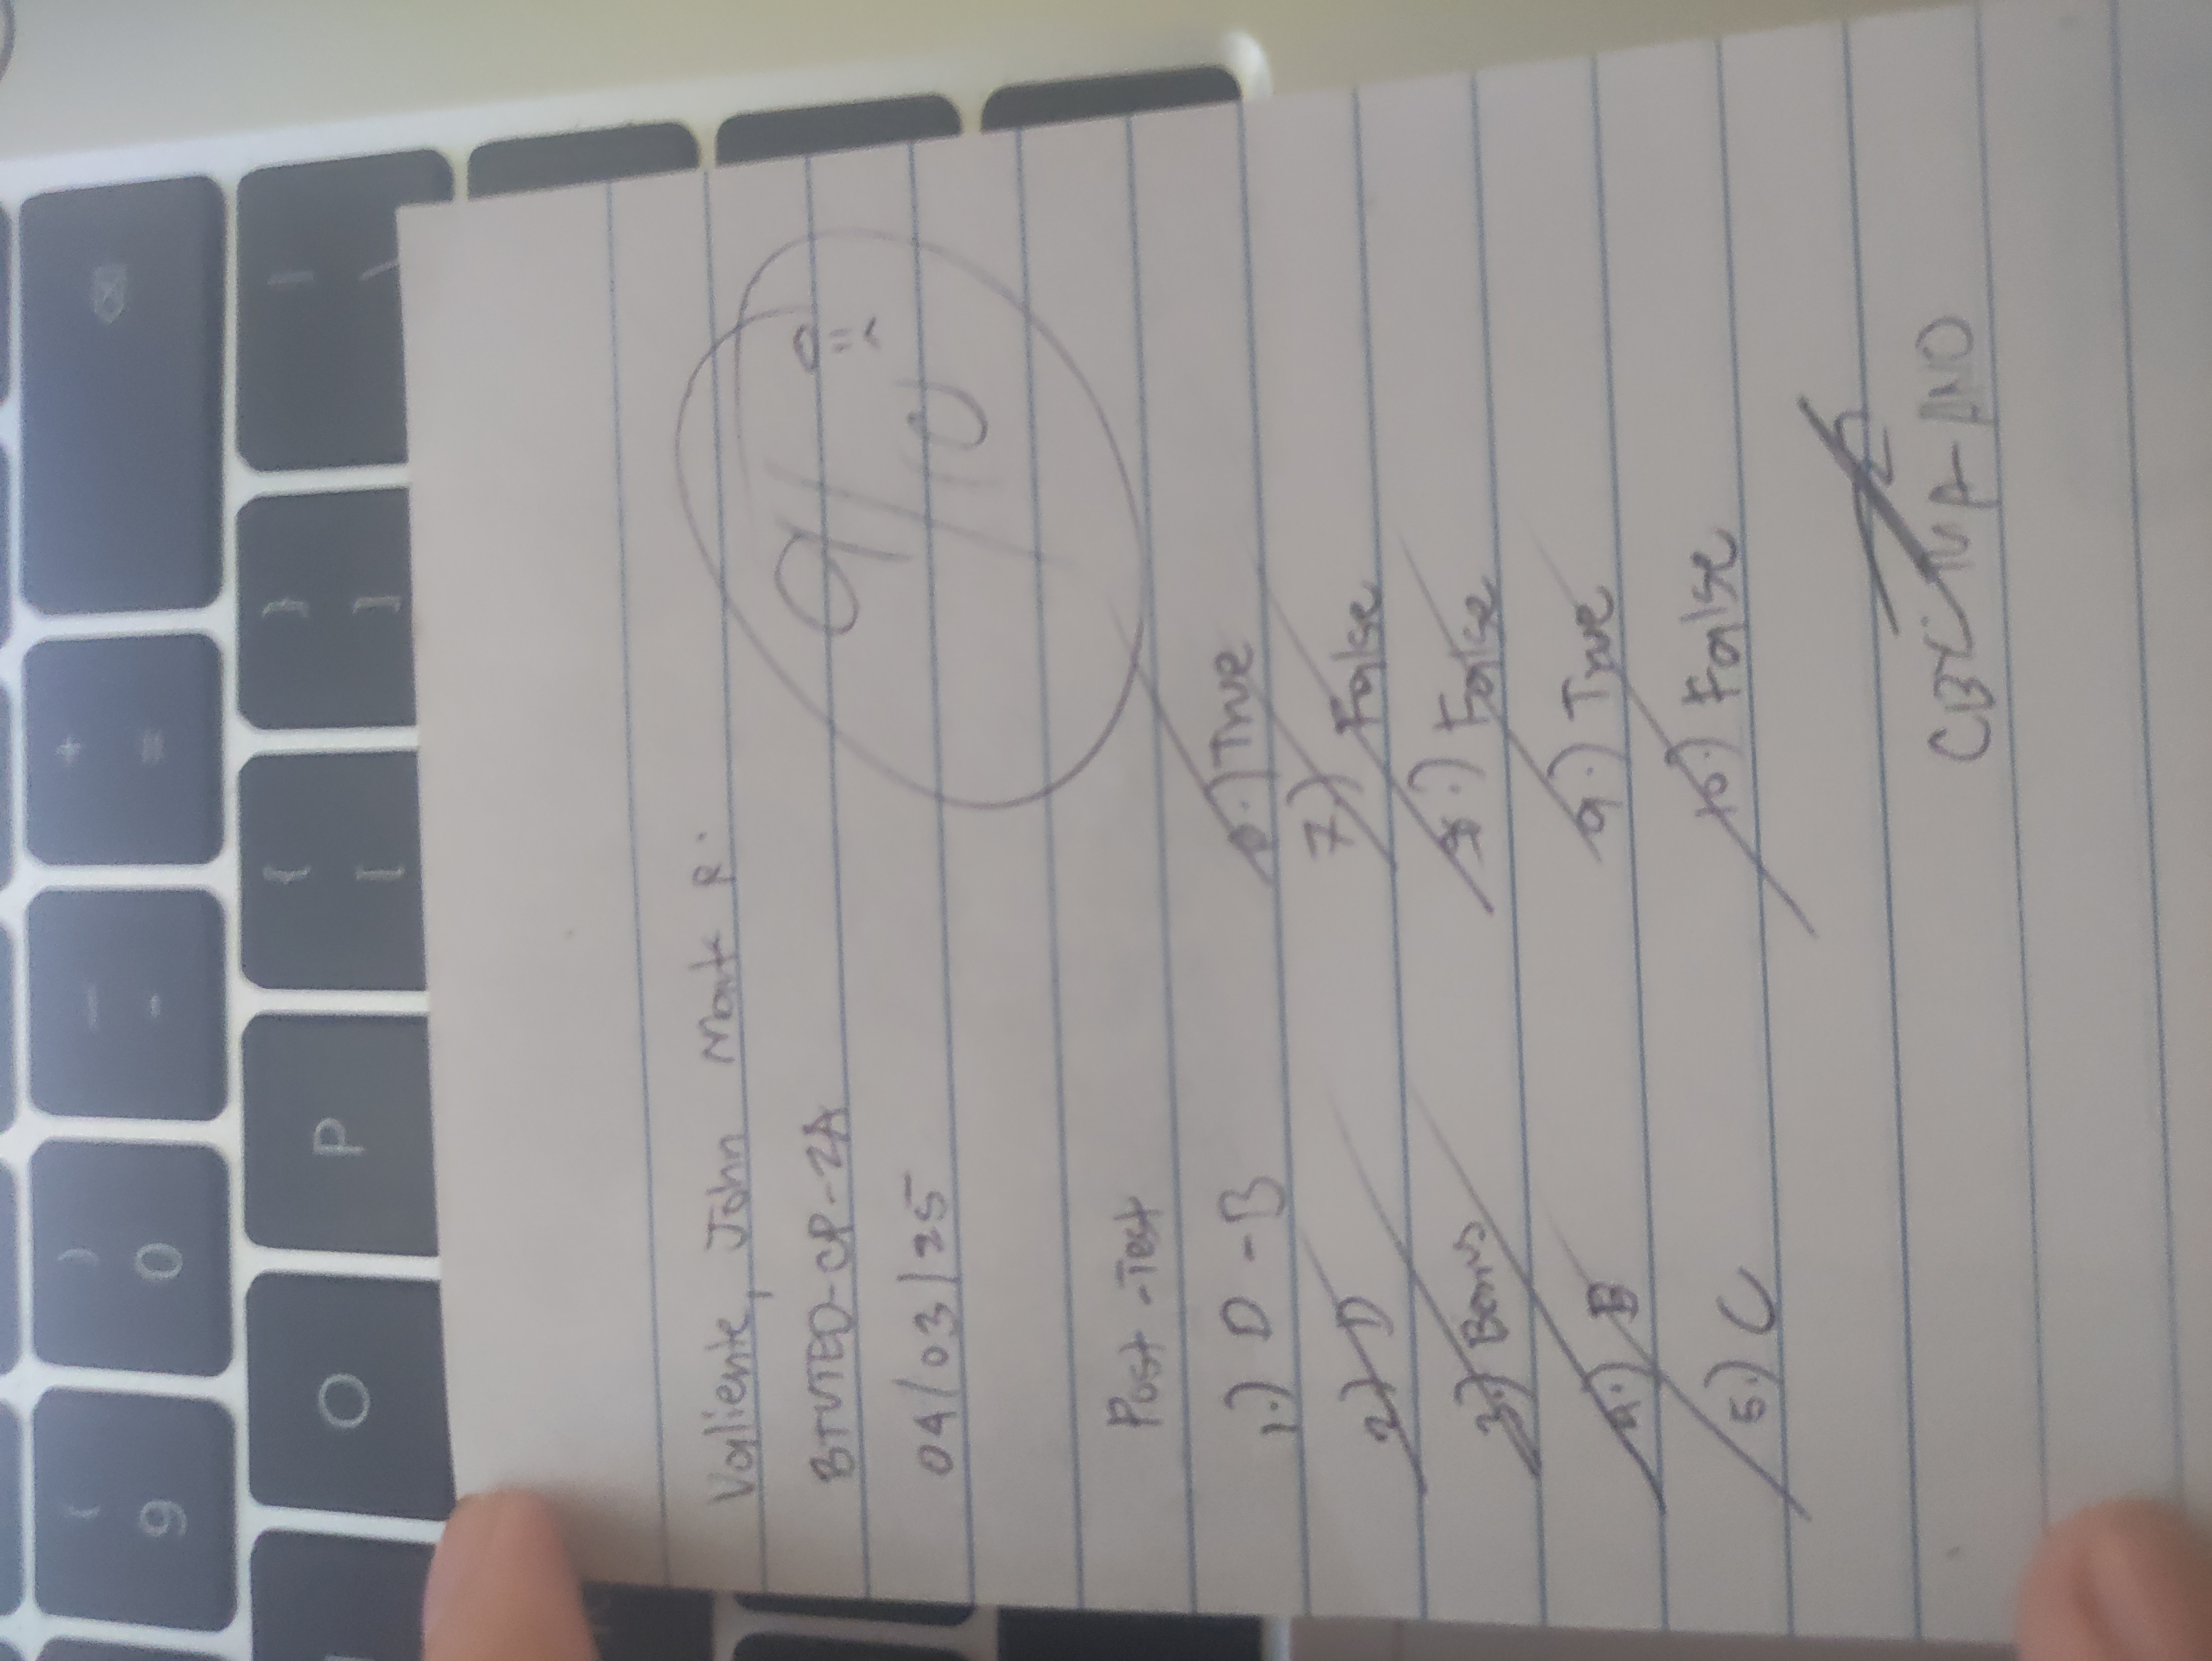 ( ) — +
9 0 - =
O P { } |
[ ] \
Valiente, John Mark R.
BTVTED-CP-2A
04/03/25
9/10
Post-Test
1.) D - B
2.) D
3.) Bonus
4.) B
5.) C
6.) True
7.) False
8.) False
9.) True
10.) False